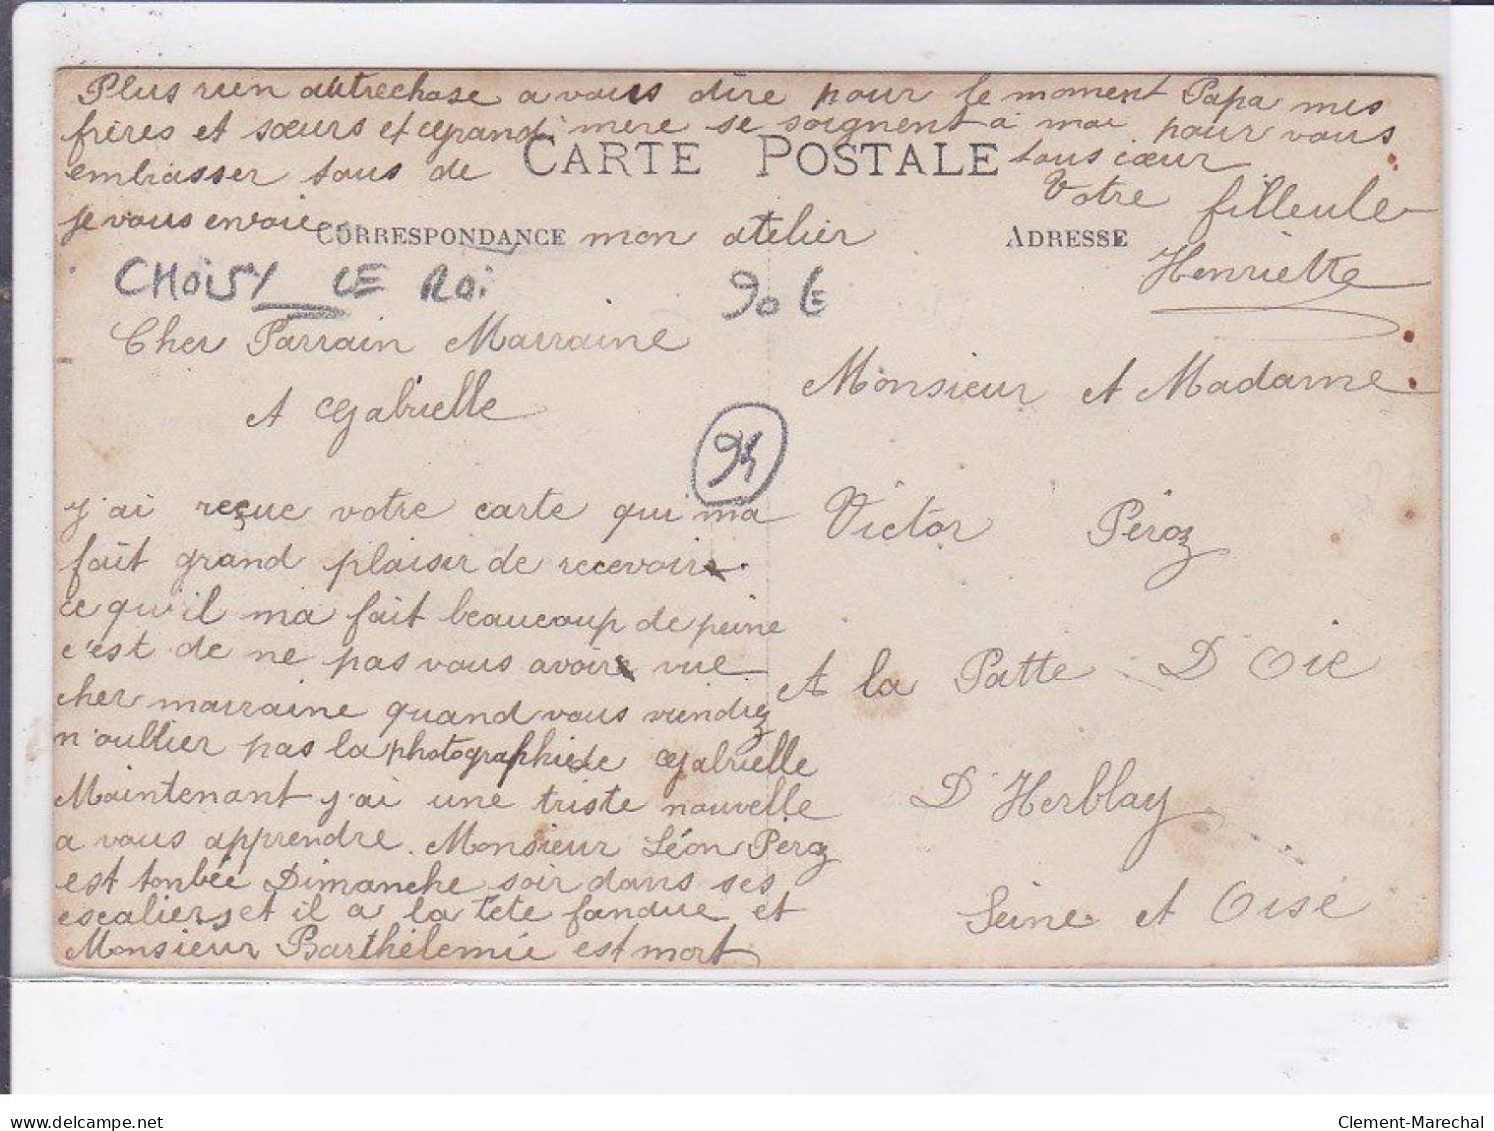 Plus rien autrechose a vous dire pour le moment Papa mes
frères et sœurs et grand mère se soignent à moi pour vous
CARTE POSTALE
embrasser tous de tous cœur
Votre filleule
je vous envoie mon atelier
CORRESPONDANCE
ADRESSE
Henriette
CHOiSY LE ROi
90 €
Cher Parrain Marraine
et Gabrielle
94
j'ai reçue votre carte qui ma
fait grand plaisir de recevoir
ce qu'il ma fait beaucoup de peine
c'est de ne pas vous avoir vue
cher marraine quand vous viendrez
n'oublier pas la photographie de Gabrielle
Maintenant j'ai une triste nouvelle
a vous apprendre. Monsieur Léon Péroz
est tonbée Dimanche soir dans ses
escaliers et il a la tête fandue et
Monsieur Barthélemie est mort
Monsieur et Madame
Victor Péroz
A la Patte D'Oie
D'Herblay
Seine et Oise
www.delcampe.net
Clement-Marechal